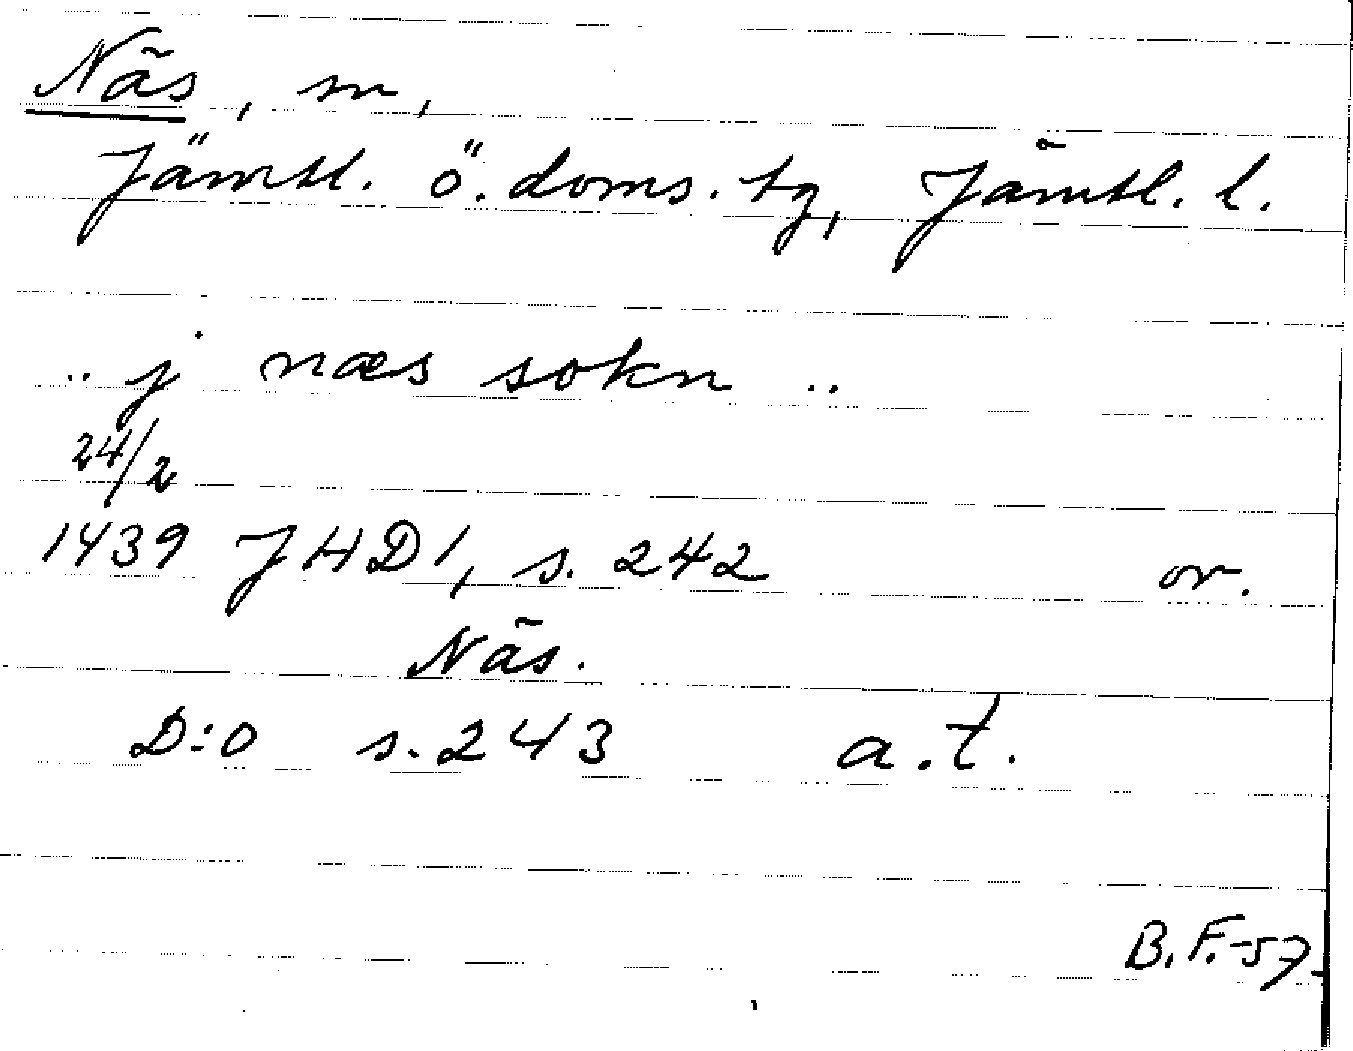 Näs, sn,
Jämtl. ö. doms. tg, Jämtl. l.
.. j næs sokn ..
24/2
1439 JHD 1, s. 242 or.
Näs.
D:o s. 243 a.t.
B.F.-57.